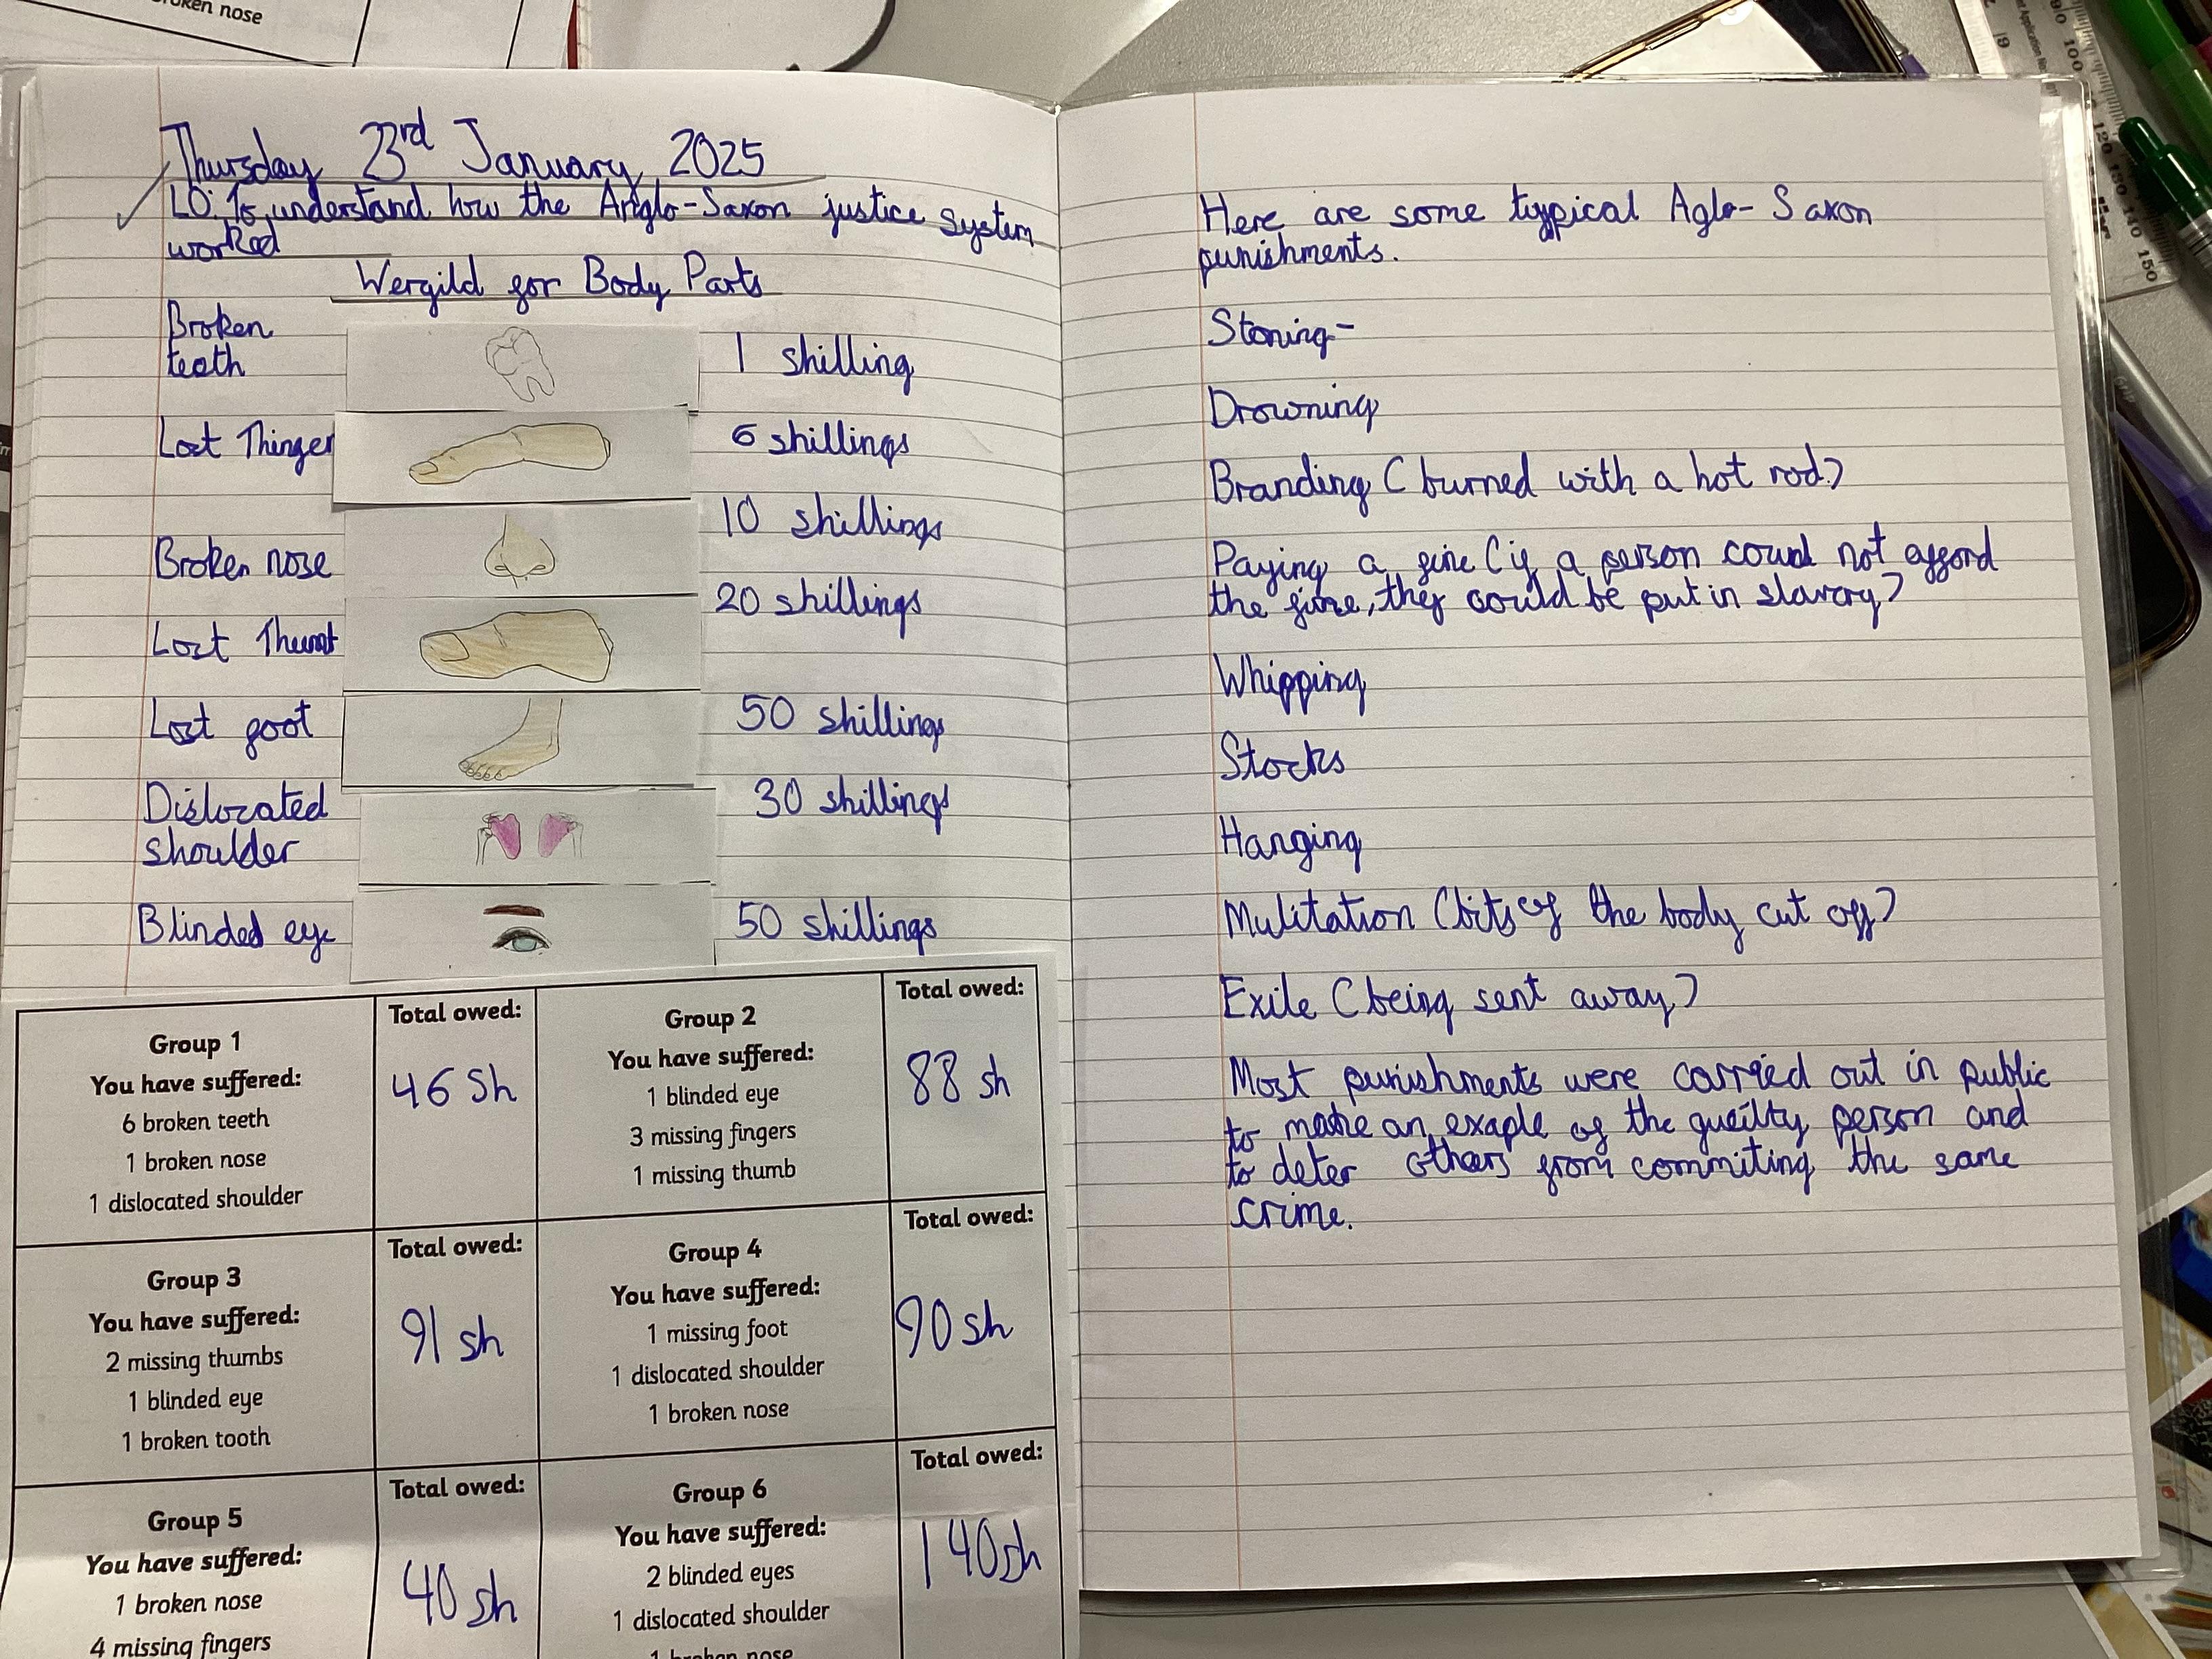 broken nose
Thursday 23rd January 2025
LO: To understand how the Anglo-Saxon justice system
worked
Wergild for Body Parts
Broken
teeth
1 shilling
Lost Thinger
6 shillings
Broken nose
10 shillings
Lost
20 shillings
Lost foot
50 shillings
Dislocated
shoulder
30 shillings
Blinded eye
50 shillings
Group 1
You have suffered:
6 broken teeth
1 broken nose
1 dislocated shoulder
Total owed:
46 Sh
Group 2
You have suffered:
1 blinded eye
3 missing fingers
1 missing thumb
Total owed:
88 sh
Group 3
You have suffered:
2 missing thumbs
1 blinded eye
1 broken tooth
Total owed:
91 sh
Group 4
You have suffered:
1 missing foot
1 dislocated shoulder
1 broken nose
Total owed:
90 sh
Group 5
You have suffered:
1 broken nose
4 missing fingers
Total owed:
40 sh
Group 6
You have suffered:
2 blinded eyes
1 dislocated shoulder
1 broken nose
Total owed:
140 sh
Here are some typical Aglo-Saxon
punishments.
Stoning-
Drowning
Branding (burned with a hot rod)
Paying a fine (if a person could not afford
the fine, they could be put in slavery)
Whipping
Stocks
Hanging
Mulitation (bits of the body cut off)
Exile (being sent away)
Most punishments were carried out in public
to make an exaple of the gueilty person and
to deter others from commiting the same
crime.
90 100
120 130 140 150